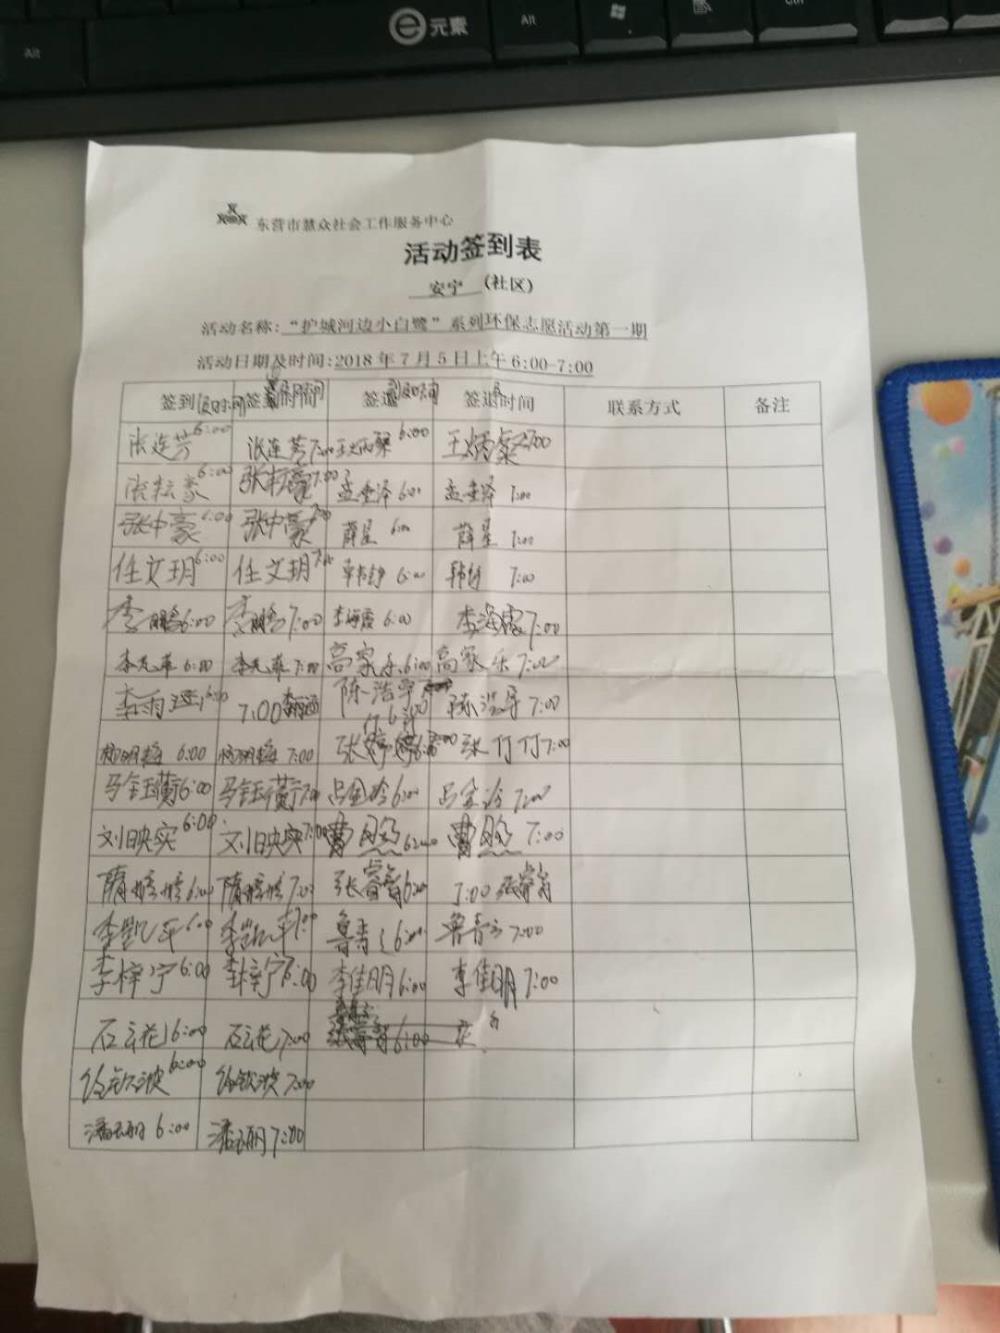 e元素
Alt
Alt
Ctrl
东营市慧众社会工作服务中心
活动签到表
安宁 (社区)
活动名称:“护城河边小白鹭”系列环保志愿活动第一期
活动日期及时间:2018年7月5日上午6:00-7:00
签到 签到时间 签退 签退时间 联系方式 备注
张连芳 6:00 张连芳 7:00 王炳粲 6:00 王炳粲 7:00
张耘豪 6:00 张耘豪 7:00 孟垂泽 6:00 孟垂泽 7:00
张中豪 6:00 张中豪 7:00 薛星 6:00 薛星 7:00
任文玥 6:00 任文玥 7:00 6:00 7:00
李鹏 6:00 李鹏 7:00 李海霞 6:00 李海霞 7:00
李光菲 6:00 李光菲 7:00 高家乐 6:00 高家乐 7:00
李雨 6:00 7:00 李雨 陈浩宇 6:00 陈浩 7:00
6:00 7:00 张婷婷 6:00 张竹竹 7:00
马钰 6:00 马钰 7:00 吕金玲 6:00 吕金玲 7:00
刘映实 6:00 刘映实 7:00 曹 6:00 曹 7:00
隋婷婷 6:00 隋婷婷 7:00 张睿智 6:00 7:00 张睿智
李凯平 6:00 李凯平 7:00 鲁青 6:00 鲁青 7:00
李梓宁 6:00 李梓宁 6:00 李佳明 6:00 李佳明 7:00
石云花 6:00 石云花 7:00 6:00
徐钦波 6:00 徐钦波 7:00
潘玉丽 6:00 潘玉丽 7:00